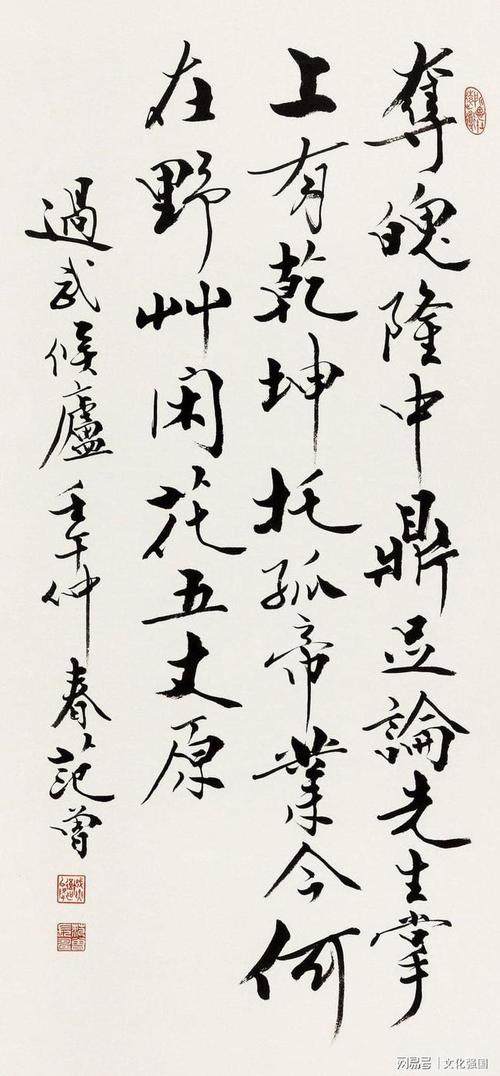 奪魄隆中鼎足論先生掌
上有乾坤托孤帝業今何
在野艸闲花五丈原
過武候廬壬午仲春范曾
网易号 | 文化强国